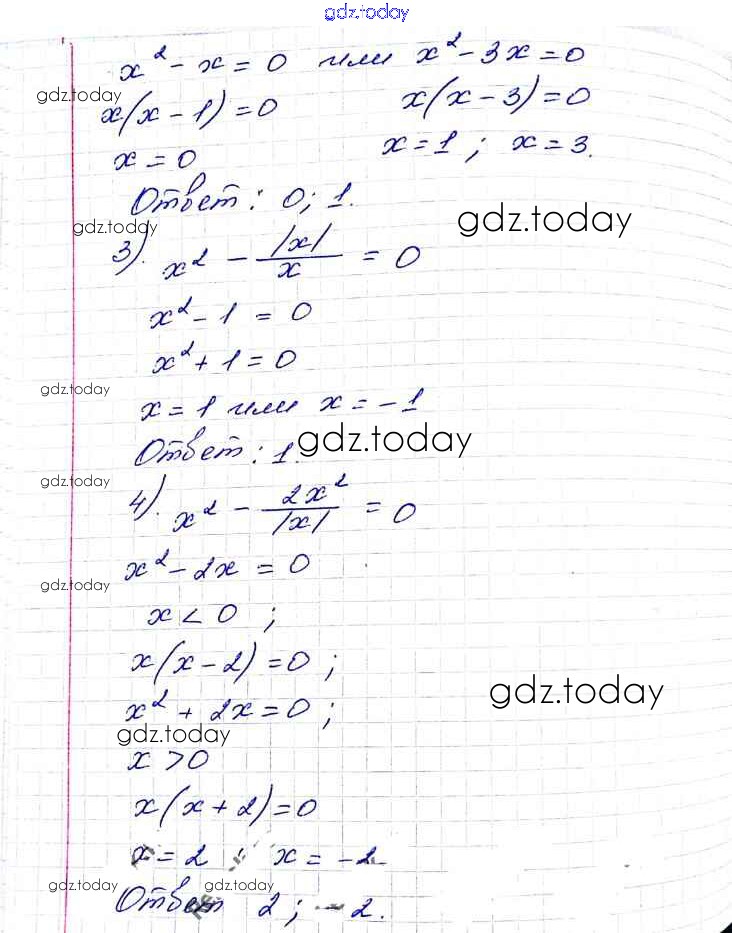 gdz.today
x² - x = 0 или x² - 3x = 0
gdz.today
x(x - 1) = 0 x(x - 3) = 0
x = 0 x = 1 ; x = 3.
Ответ: 0; 1.
gdz.today gdz.today
3). x² - |x|/x = 0
x² - 1 = 0
x² + 1 = 0
gdz.today
x = 1 или x = -1
Ответ: 1. gdz.today
gdz.today
4). x² - 2x²/|x| = 0
x² - 2x = 0
gdz.today
x < 0 ;
x(x - 2) = 0 ;
gdz.today
x² + 2x = 0 ;
gdz.today
x > 0
x(x + 2) = 0
x = 2 ; x = -2
gdz.today gdz.today
Ответ 2 ; -2.